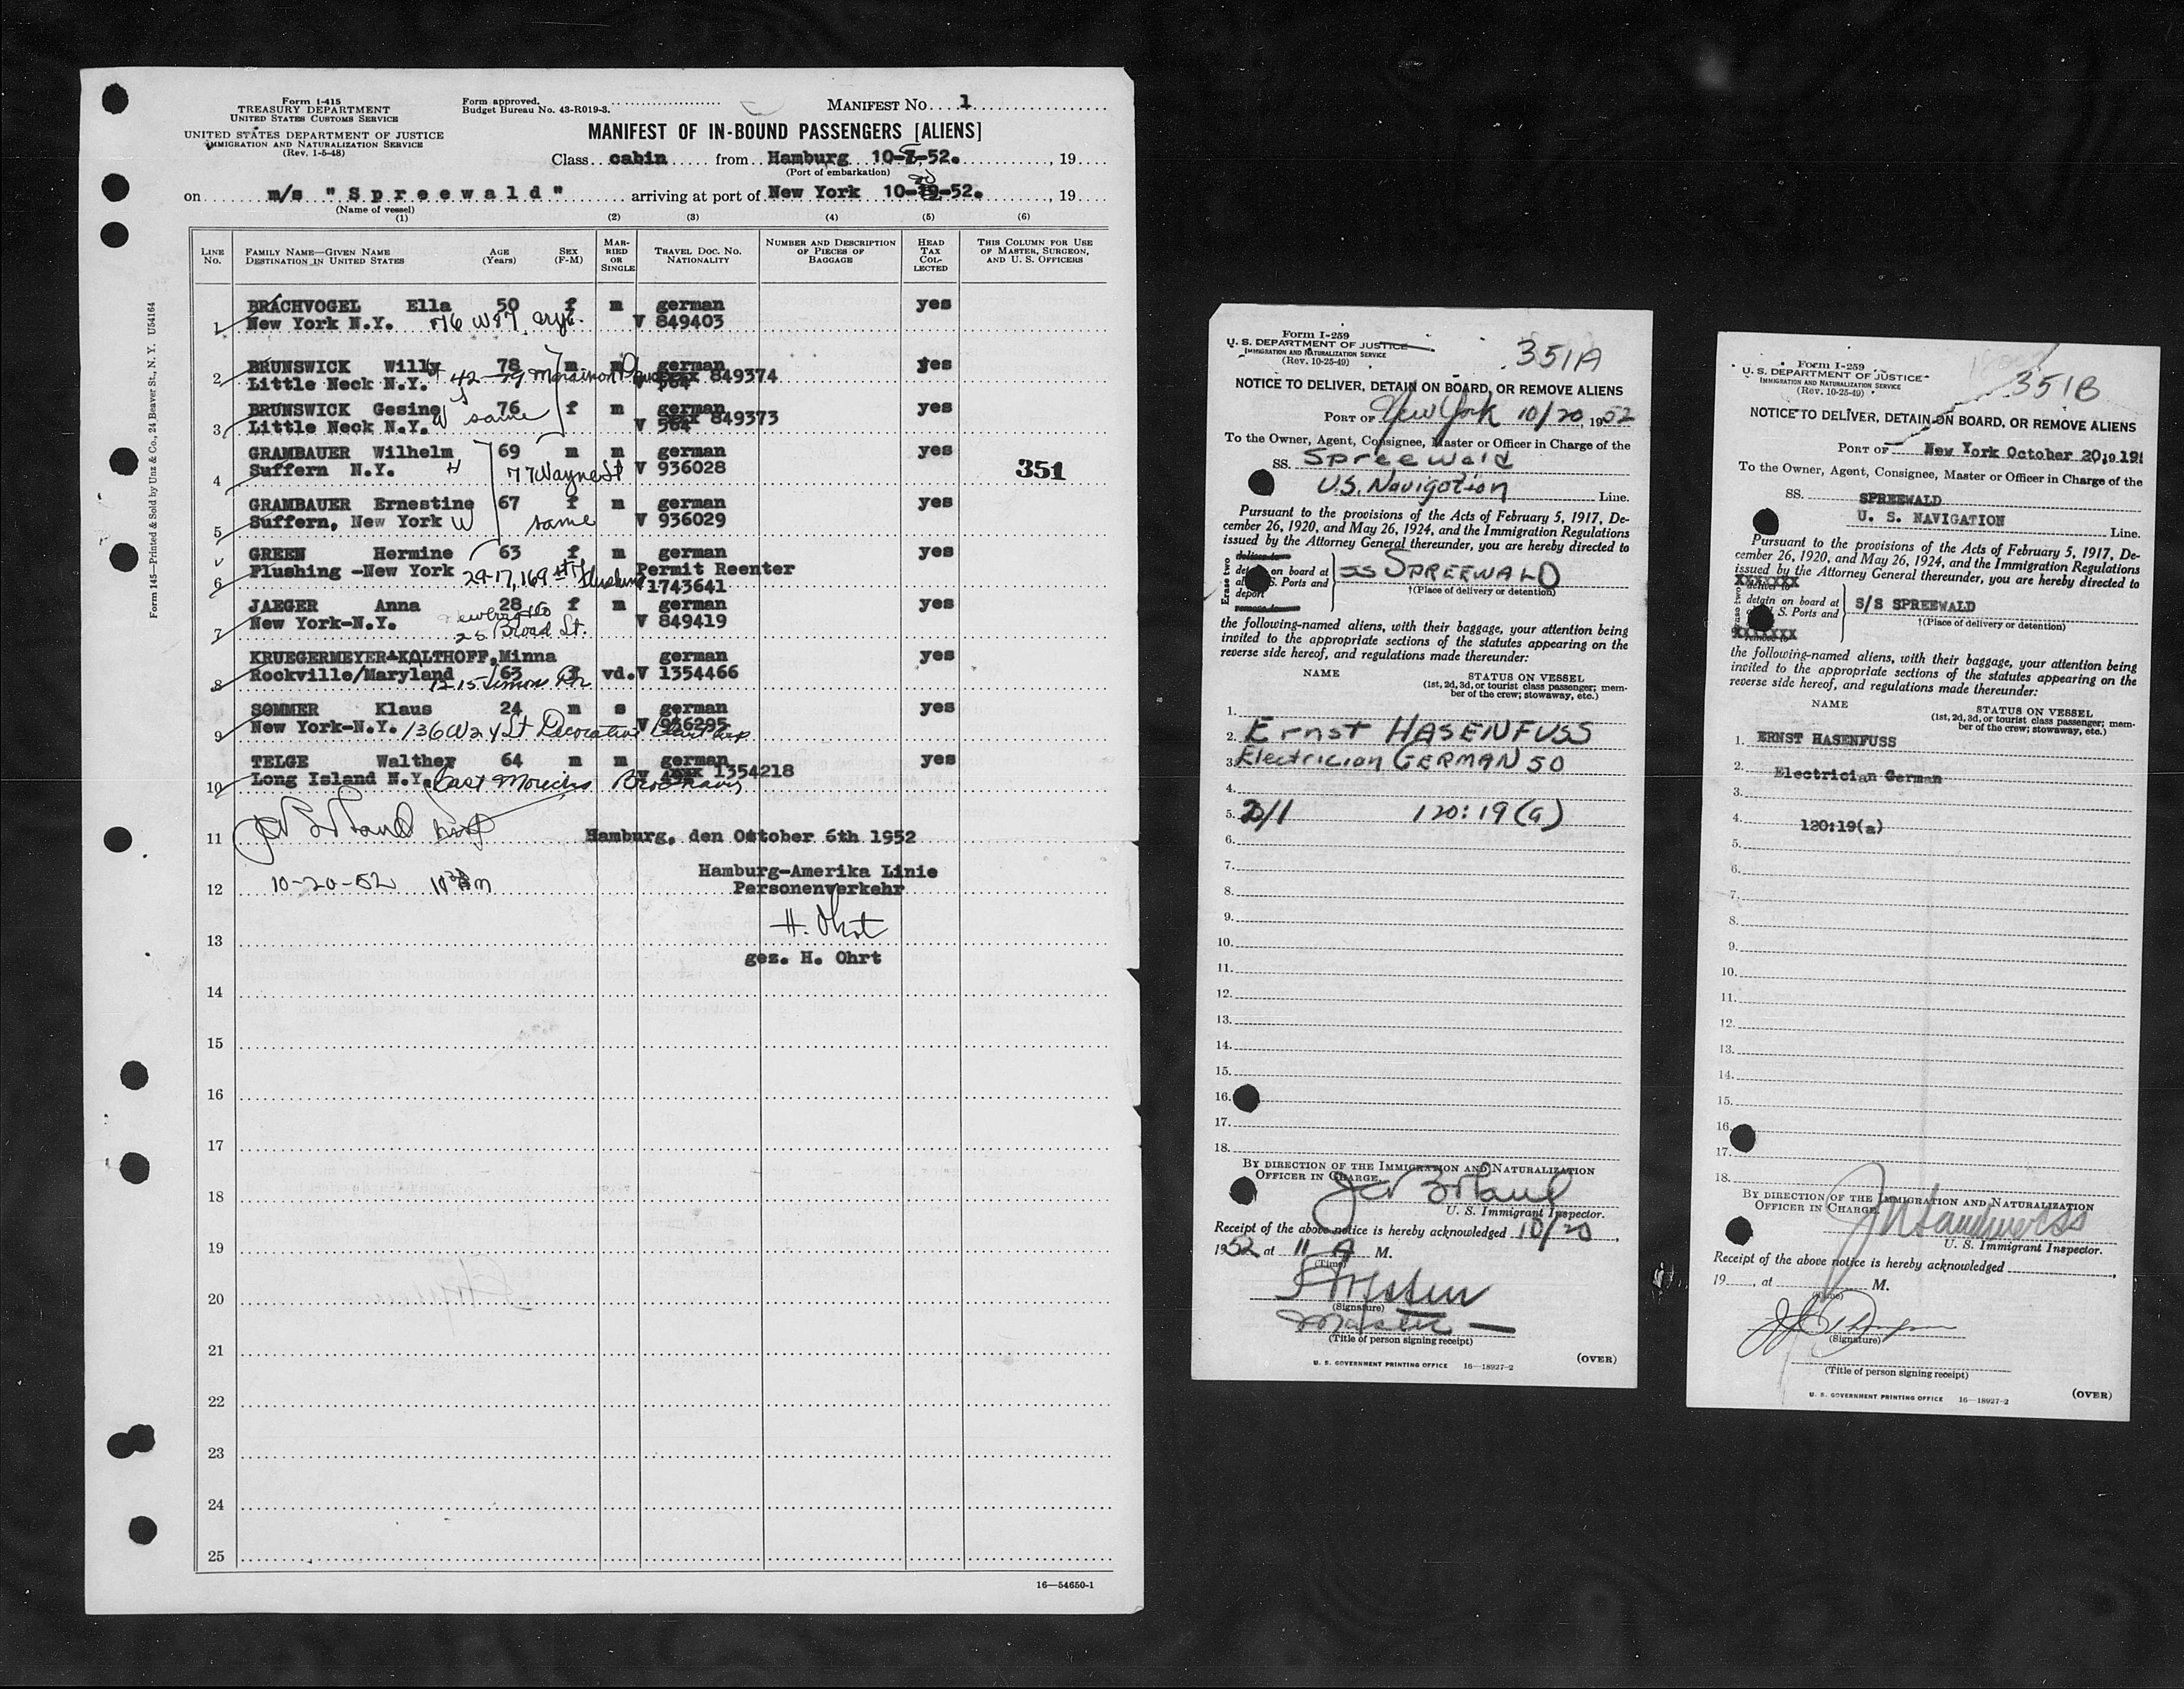 Form I-415
TREASURY DEPARTMENT
UNITED STATES CUSTOMS SERVICE
UNITED STATES DEPARTMENT OF JUSTICE
IMMIGRATION AND NATURALIZATION SERVICE
(Rev. 1-5-48)
Form approved.
Budget Bureau No. 43-R019-3.
MANIFEST No. 1
MANIFEST OF IN-BOUND PASSENGERS [ALIENS]
Class cabin from Hamburg 10- -52. , 19
(Port of embarkation)
on m/s "Spreewald" arriving at port of New York 10- -52. , 19
(Name of vessel)
(1) (2) (3) (4) (5) (6)
LINE No. FAMILY NAME—GIVEN NAME DESTINATION IN UNITED STATES AGE (Years) SEX (F-M) MARRIED OR SINGLE TRAVEL DOC. NO. NATIONALITY NUMBER AND DESCRIPTION OF PIECES OF BAGGAGE HEAD TAX COLLECTED THIS COLUMN FOR USE OF MASTER, SURGEON, AND U. S. OFFICERS
Form 145—Printed & Sold by Unz & Co., 24 Beaver St., N. Y. U54164
BRACHVOGEL Ella 50 f m german yes
1 New York N.Y. W 87 V 849403
BRUNSWICK Willy 78 m m german yes
2 Little Neck N.Y. 42-29 849374
BRUNSWICK Gesine 76 f m german yes
3 Little Neck N.Y. W same V 849373
GRAMBAUER Wilhelm 69 m m german yes
4 Suffern N.Y. H 77 Wayne St V 936028 351
GRAMBAUER Ernestine 67 f m german yes
5 Suffern, New York W same V 936029
GREEN Hermine 63 f m german yes
6 Flushing -New York 29-17, 169 St Flushing Permit Reenter
1743641
JAEGER Anna 28 f m german yes
7 New York-N.Y. 25 Broad St. V 849419
KRUEGERMEYER-KOLTHOFF, Minna german yes
8 Rockville/Maryland 63 f vd. V 1354466
SOMMER Klaus 24 m s german yes
9 New York-N.Y. 136 W 24 St V 956295
TELGE Walther 64 m m german yes
10 Long Island N.Y. East Moriches V 1354218
11 Hamburg, den October 6th 1952
Hamburg-Amerika Linie
12 10-20-52 Personenverkehr
H. Ohrt
13
gez. H. Ohrt
14
15
16
17
18
19
20
21
22
23
24
25
16—54650-1
Form I-259
U. S. DEPARTMENT OF JUSTICE
IMMIGRATION AND NATURALIZATION SERVICE
(Rev. 10-25-49)
351A
NOTICE TO DELIVER, DETAIN ON BOARD, OR REMOVE ALIENS
PORT OF New York 10/20, 1952
To the Owner, Agent, Consignee, Master or Officer in Charge of the
SS. Spreewald
U.S. Navigation Line.
Pursuant to the provisions of the Acts of February 5, 1917, De-
cember 26, 1920, and May 26, 1924, and the Immigration Regulations
issued by the Attorney General thereunder, you are hereby directed to
Erase two
deliver to
on board at
S. Ports and
deport
remove to
SS SPREEWALD
†(Place of delivery or detention)
the following-named aliens, with their baggage, your attention being
invited to the appropriate sections of the statutes appearing on the
reverse side hereof, and regulations made thereunder:
NAME STATUS ON VESSEL
(1st, 2d, 3d, or tourist class passenger; mem-
ber of the crew; stowaway, etc.)
1.
2. Ernst HASENFUSS
3. Electrician GERMAN 50
4.
5. D/1 120:19(a)
6.
7.
8.
9.
10.
11.
12.
13.
14.
15.
16.
17.
18.
BY DIRECTION OF THE IMMIGRATION AND NATURALIZATION
OFFICER IN CHARGE.
U. S. Immigrant Inspector.
Receipt of the above notice is hereby acknowledged 10/20,
1952 at 11 A M.
(Time)
(Signature)
Master
(Title of person signing receipt)
U. S. GOVERNMENT PRINTING OFFICE 16—18927-2 (OVER)
Form I-259
U. S. DEPARTMENT OF JUSTICE
IMMIGRATION AND NATURALIZATION SERVICE
(Rev. 10-25-49)
351B
NOTICE TO DELIVER, DETAIN ON BOARD, OR REMOVE ALIENS
PORT OF New York October 20,
To the Owner, Agent, Consignee, Master or Officer in Charge of the
SS. SPREEWALD
U. S. NAVIGATION Line.
Pursuant to the provisions of the Acts of February 5, 1917, De-
cember 26, 1920, and May 26, 1924, and the Immigration Regulations
issued by the Attorney General thereunder, you are hereby directed to
XXXXXXX
detain on board at
S. Ports and
XXXXXXX
S/S SPREEWALD
†(Place of delivery or detention)
the following-named aliens, with their baggage, your attention being
invited to the appropriate sections of the statutes appearing on the
reverse side hereof, and regulations made thereunder:
NAME STATUS ON VESSEL
(1st, 2d, 3d, or tourist class passenger; mem-
ber of the crew; stowaway, etc.)
1. ERNST HASENFUSS
2. Electrician German
3.
4. 120:19(a)
5.
6.
7.
8.
9.
10.
11.
12.
13.
14.
15.
16.
17.
18.
BY DIRECTION OF THE IMMIGRATION AND NATURALIZATION
OFFICER IN CHARGE.
U. S. Immigrant Inspector.
Receipt of the above notice is hereby acknowledged ,
19 , at M.
(Time)
(Signature)
(Title of person signing receipt)
U. S. GOVERNMENT PRINTING OFFICE 16—18927-2 (OVER)